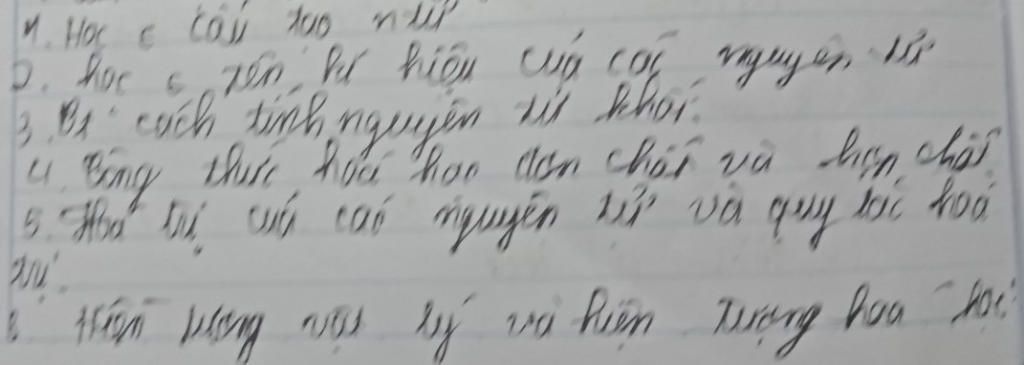 1. Học cấu tạo ntử
2. học tên, kí hiệu của các nguyên tử
3. Bt cách tính nguyên tử khối.
4. Công thức hoá học đơn chất và hợp chất
5. Hoá trị của các nguyên tử và quy tắc hoá
trị.
6 Hiện tượng vật lý và hiện tượng hoá học